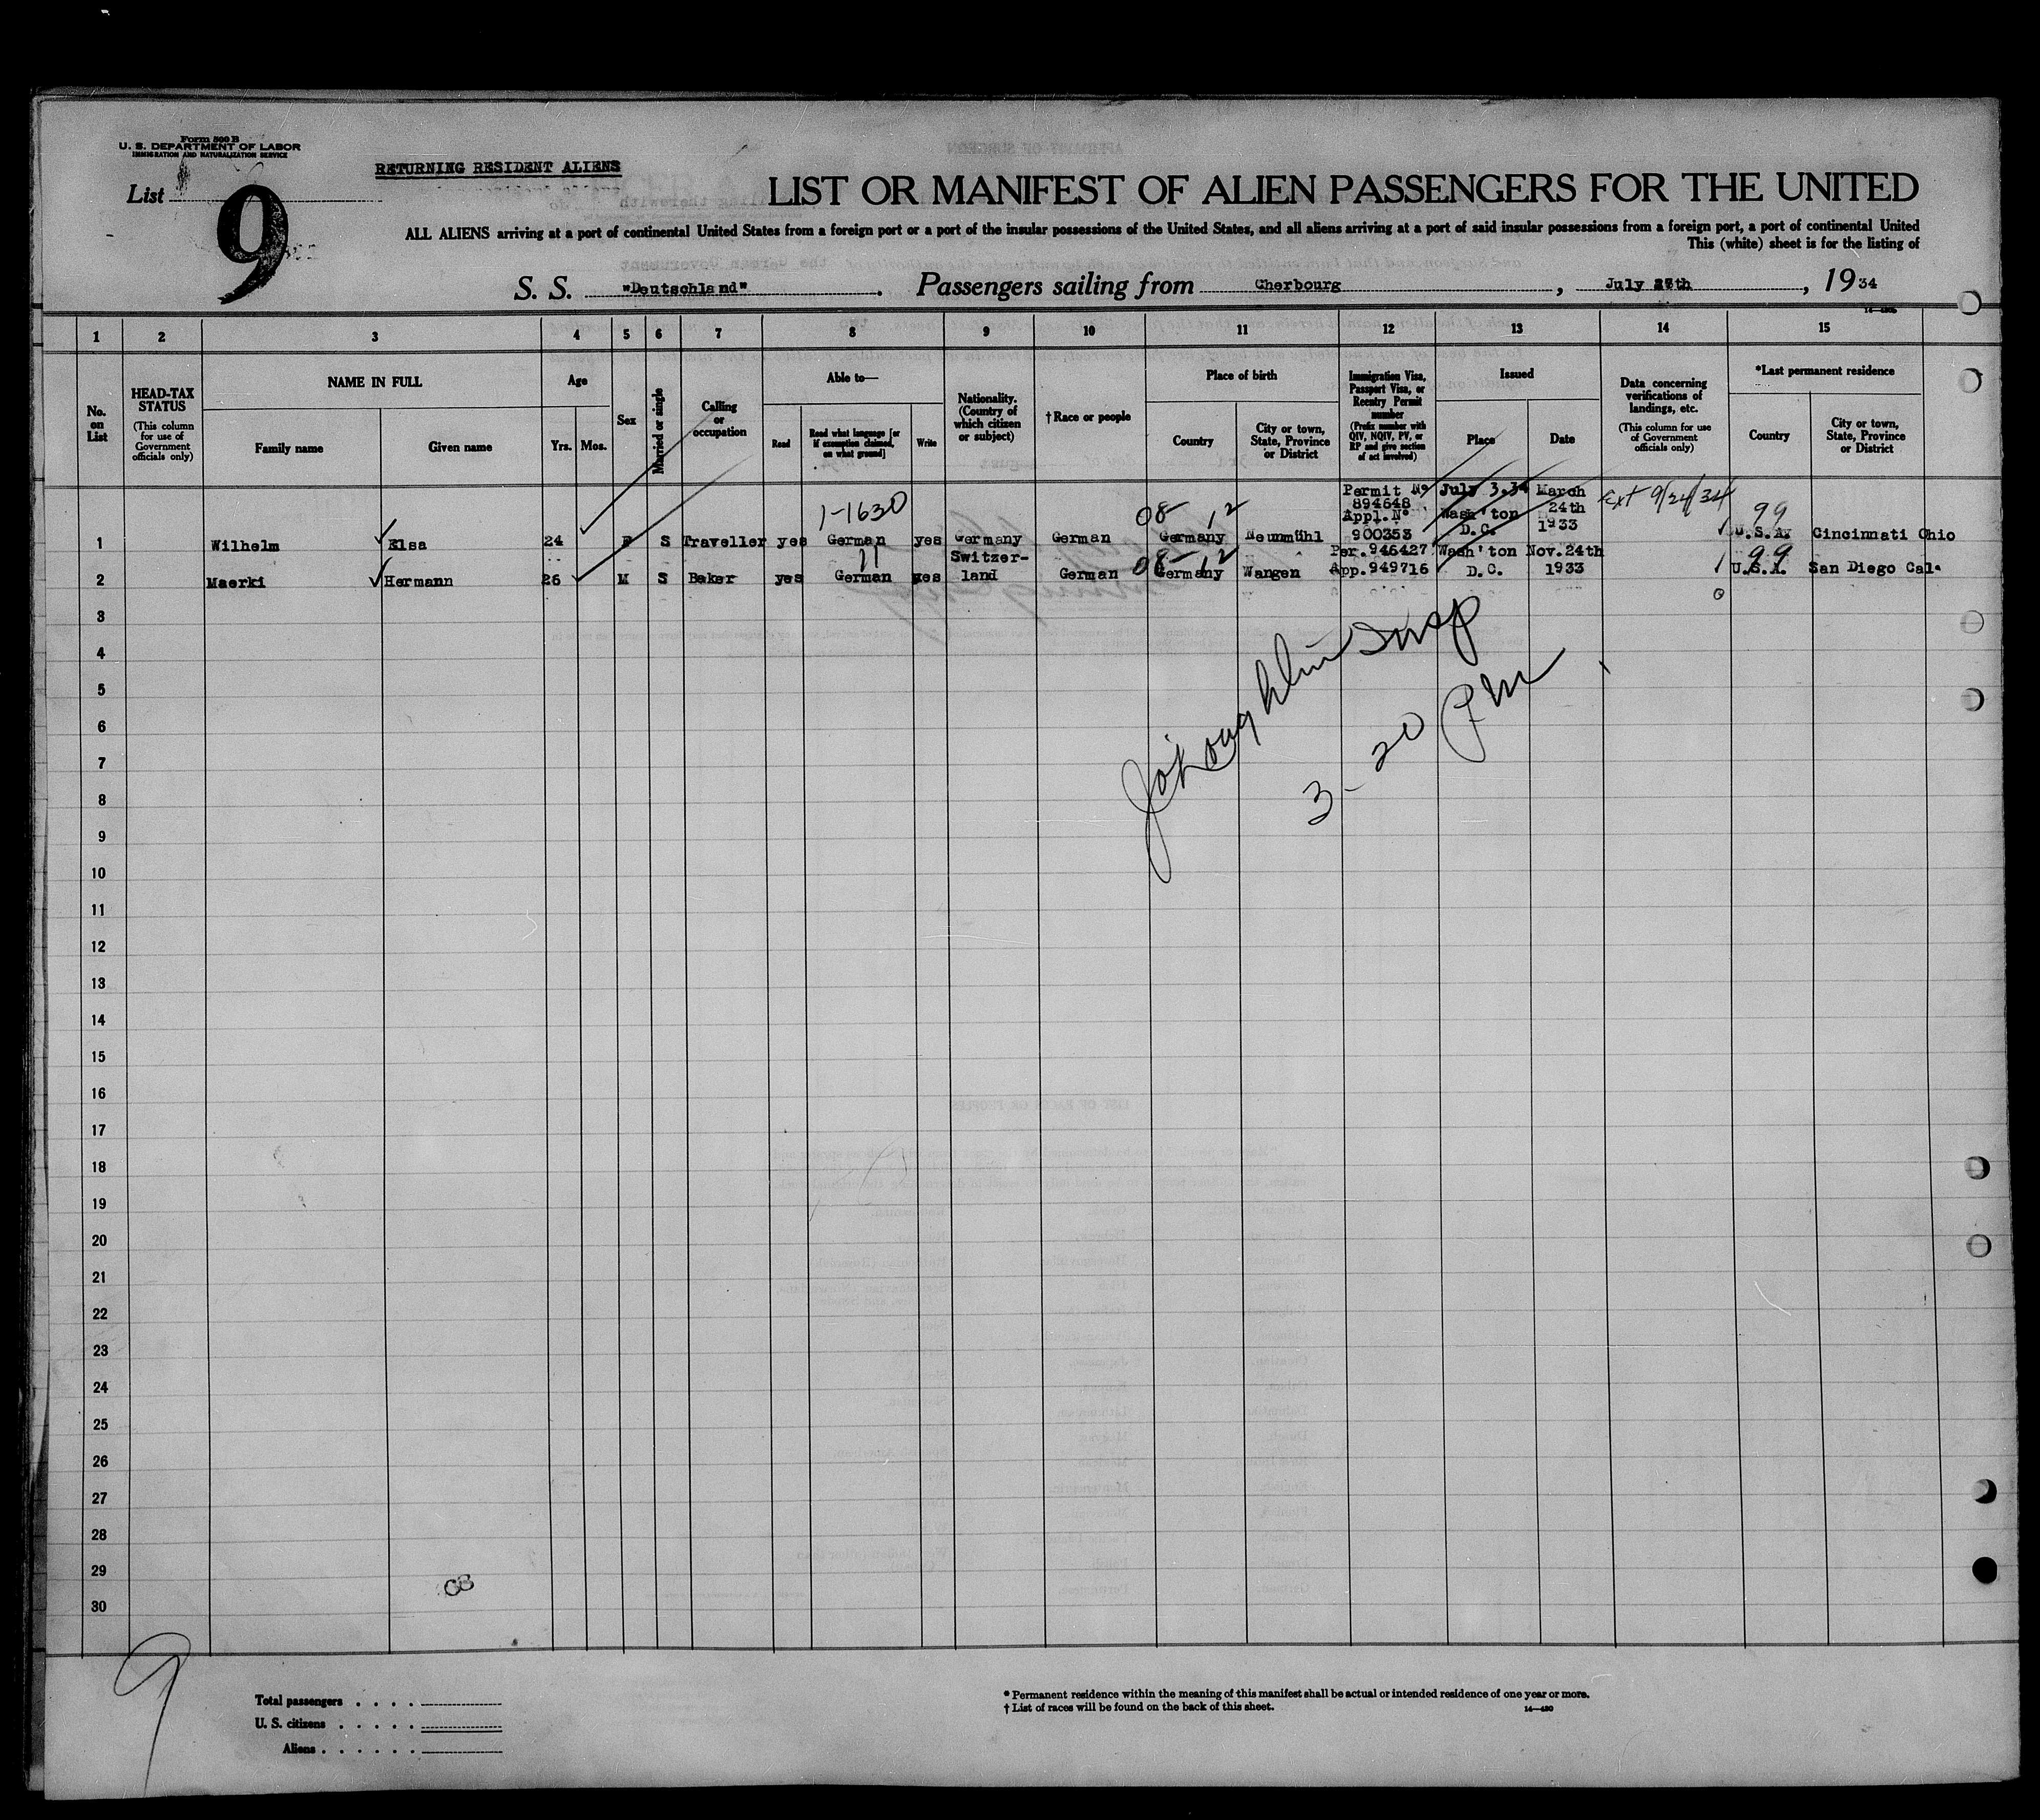 Form 500 B
U. S. DEPARTMENT OF LABOR
IMMIGRATION AND NATURALIZATION SERVICE
RETURNING RESIDENT ALIENS
List
9
LIST OR MANIFEST OF ALIEN PASSENGERS FOR THE UNITED
ALL ALIENS arriving at a port of continental United States from a foreign port or a port of the insular possessions of the United States, and all aliens arriving at a port of said insular possessions from a foreign port, a port of continental United
This (white) sheet is for the listing of
S. S. "Deutschland". Passengers sailing from Cherbourg, July 27th, 1934
1 2 3 4 5 6 7 8 9 10 11 12 13 14 15
No. on List
HEAD-TAX STATUS
(This column for use of Government officials only)
NAME IN FULL
Family name
Given name
Age
Yrs. Mos.
Sex
Married or single
Calling or occupation
Able to—
Read
Read what language [or if exemption claimed, on what ground]
Write
Nationality. (Country of which citizen or subject)
† Race or people
Place of birth
Country
City or town, State, Province or District
Immigration Visa, Passport Visa, or Reentry Permit number
(Prefix number with QIV, NQIV, PV, or RP and give section of act involved)
Issued
Place
Date
Data concerning verifications of landings, etc.
(This column for use of Government officials only)
*Last permanent residence
Country
City or town, State, Province or District
1-1630
08 12
Permit No 894648 Appl.No 900353
July 3.34
Wash'ton D.C.
March 24th 1933
Ext 9/24/34
99
1 Wilhelm Elsa 24 F S Traveller yes German yes Germany German Germany Neumühl 1 U.S.A. Cincinnati Ohio
11
08 12
99
2 Maerki Hermann 26 M S Baker yes German yes Switzerland German Germany Wangen Per.946427 App.949716 Wash'ton D.C. Nov.24th 1933 1 U.S.A. San Diego Cal.
0
3
4
5
6
7
8
9
10
11
12
13
14
15
16
17
18
19
20
21
22
23
24
25
26
27
28
29
30
Insp
3-20 PM
9
Total passengers
U. S. citizens
Aliens
* Permanent residence within the meaning of this manifest shall be actual or intended residence of one year or more.
† List of races will be found on the back of this sheet.
14—480